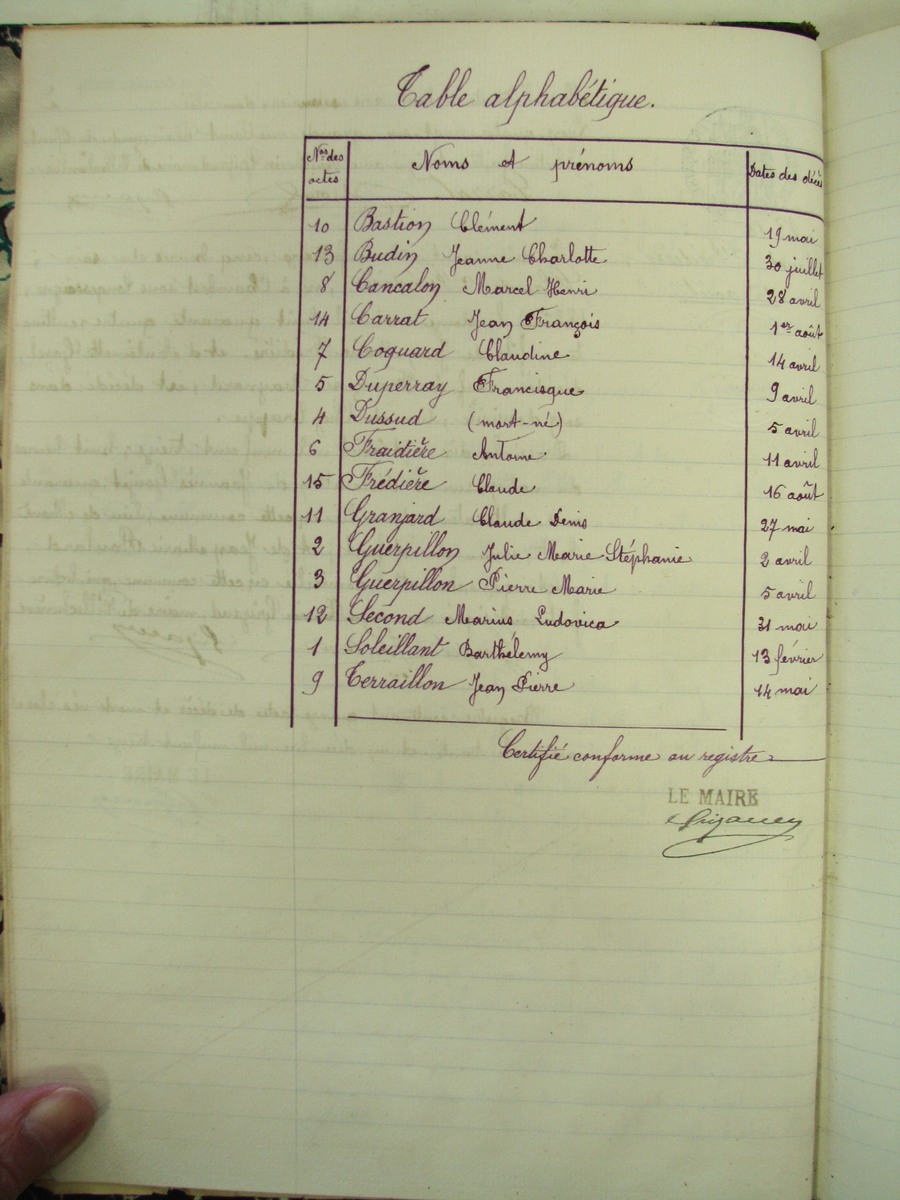 Table alphabétique.
Nos des actes Noms et prénoms Dates des décès
10 Bastion Clément 19 mai
13 Budin Jeanne Charlotte 30 juillet
8 Cancalon Marcel Henri 28 avril
14 Carrat Jean François 1er août
7 Coquard Claudine 14 avril
5 Duperray Francisque 9 avril
4 Dussud (mort-né) 5 avril
6 Fraidière Antoine 11 avril
15 Frédière Claude 16 août
11 Granjard Claude Denis 27 mai
2 Guerpillon Julie Marie Stéphanie 2 avril
3 Guerpillon Pierre Marie 5 avril
12 Second Marius Ludovica 31 mai
1 Soleillant Barthélemy 13 février
9 Terraillon Jean Pierre 14 mai
Certifié conforme au registre
LE MAIRE